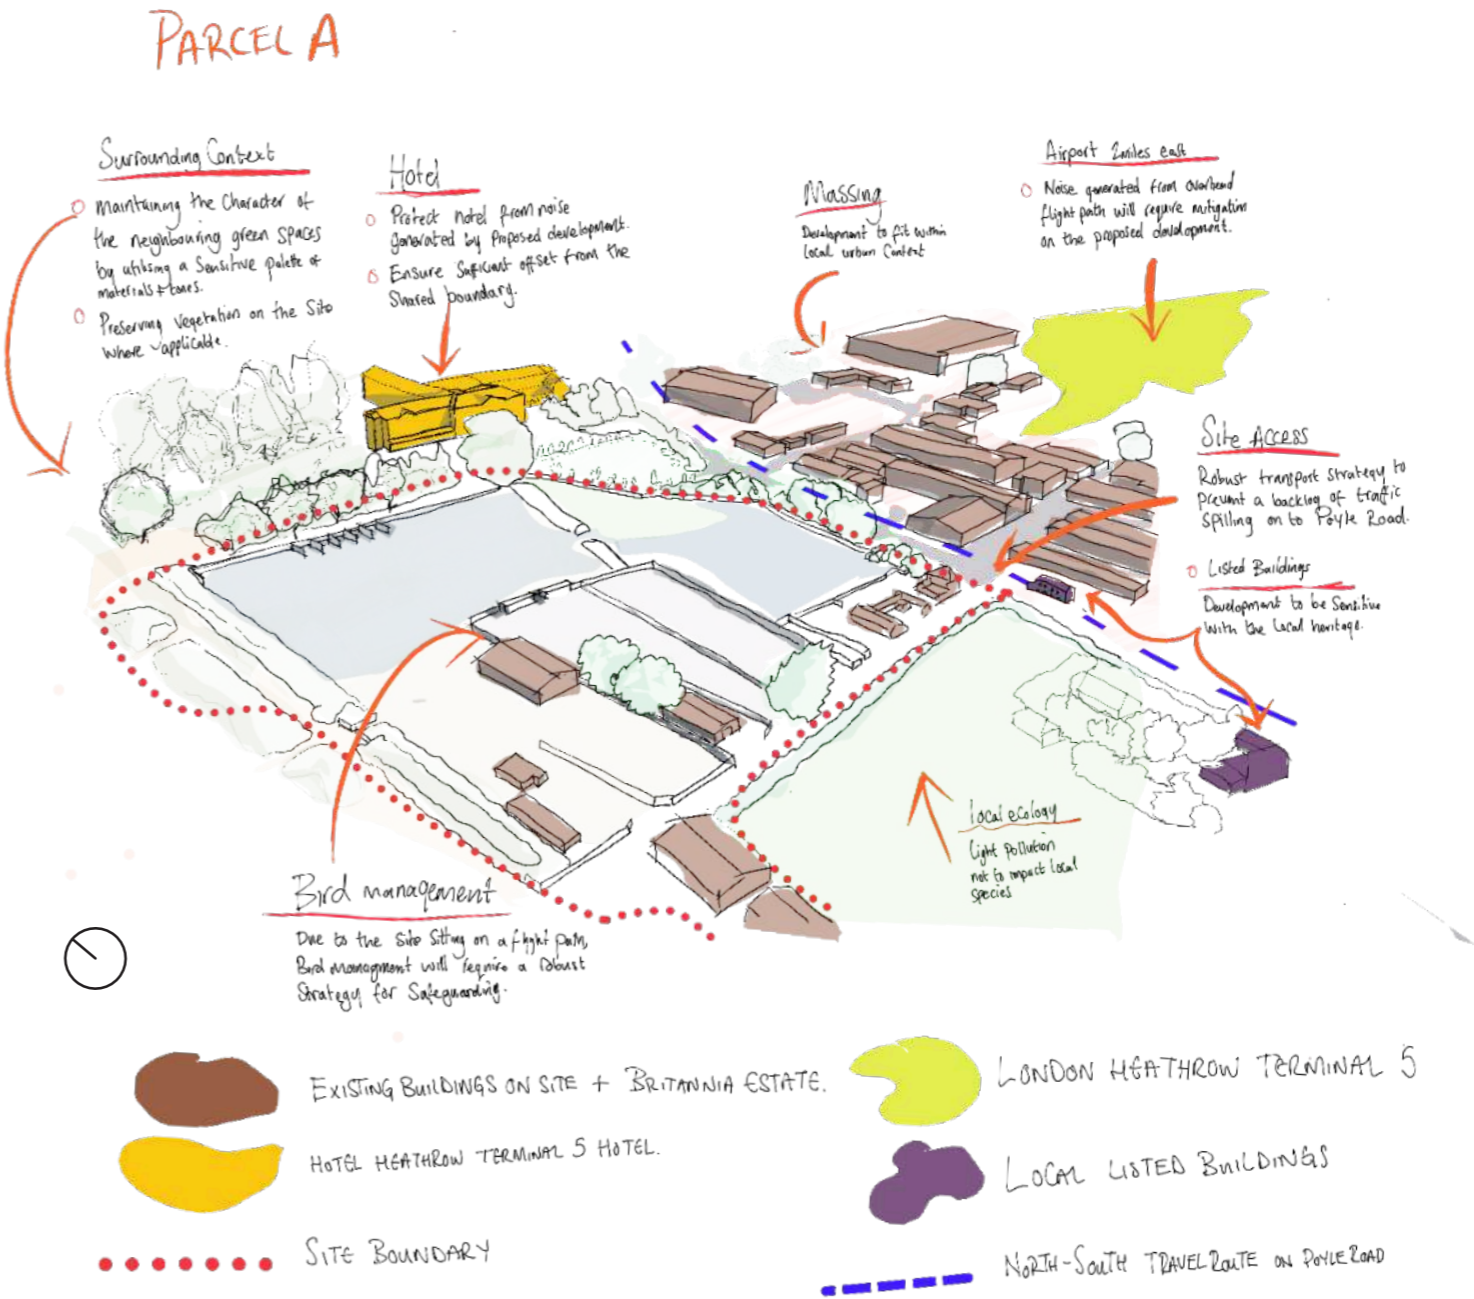 PARCEL A
Surrounding Context
Maintaining the Character of
the neighbouring green spaces
by utilising a Sensitive palette of
materials + tones.
Preserving Vegetation on the Site
where applicable.
Hotel
Protect hotel from noise
generated by Proposed development.
Ensure Suficient offset from the
Shared boundary.
Massing
Development to fit within
local urban Context
Airport 2miles east
Noise generated from overhead
flight path will require mitigation
on the proposed development.
Site Access
Robust transport strategy to
prevent a backlog of traffic
Spilling on to Poyle Road.
Listed Buildings
Development to be Sensitive
with the Local heritage.
Local ecology
Light Pollution
not to impact local
Species
Bird management
Due to the Site Sitting on a flight path,
Bird Managment will require a robust
Strategy for Safeguarding.
EXISTING BUILDINGS ON SITE + BRITANNIA ESTATE.
HOTEL HEATHROW TERMINAL 5 HOTEL.
SITE BOUNDARY
LONDON HEATHROW TERMINAL 5
LOCAL LISTED BUILDINGS
NORTH-SOUTH TRAVEL ROUTE ON POYLE ROAD